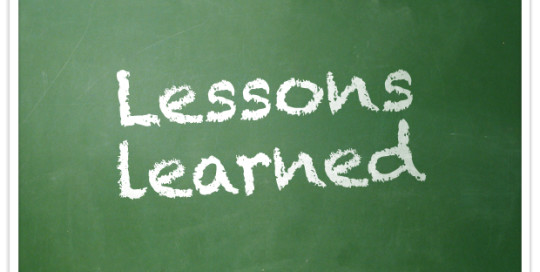 Lessons
learned